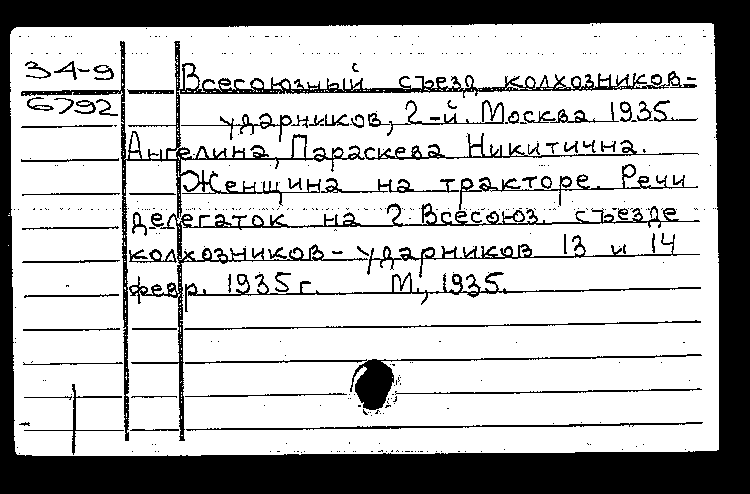 34-9 Всесоюзный съезд колхозников-
6792 ударников, 2-й. Москва. 1935.
Ангелина, Параскева Никитична.
Женщина на тракторе. Речи
делегаток на 2 Всесоюз. съезде
колхозников-ударников 13 и 14
февр. 1935 г. М., 1935.